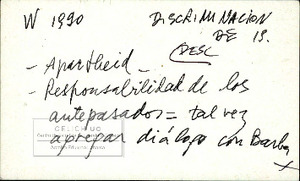 W 1990
DISCRIMINACION
DE 19.
DESC
- Apartheid -
- Responsabilidad de los
antepasados = tal vez
agregar diálogo con Barba
CELICHUC